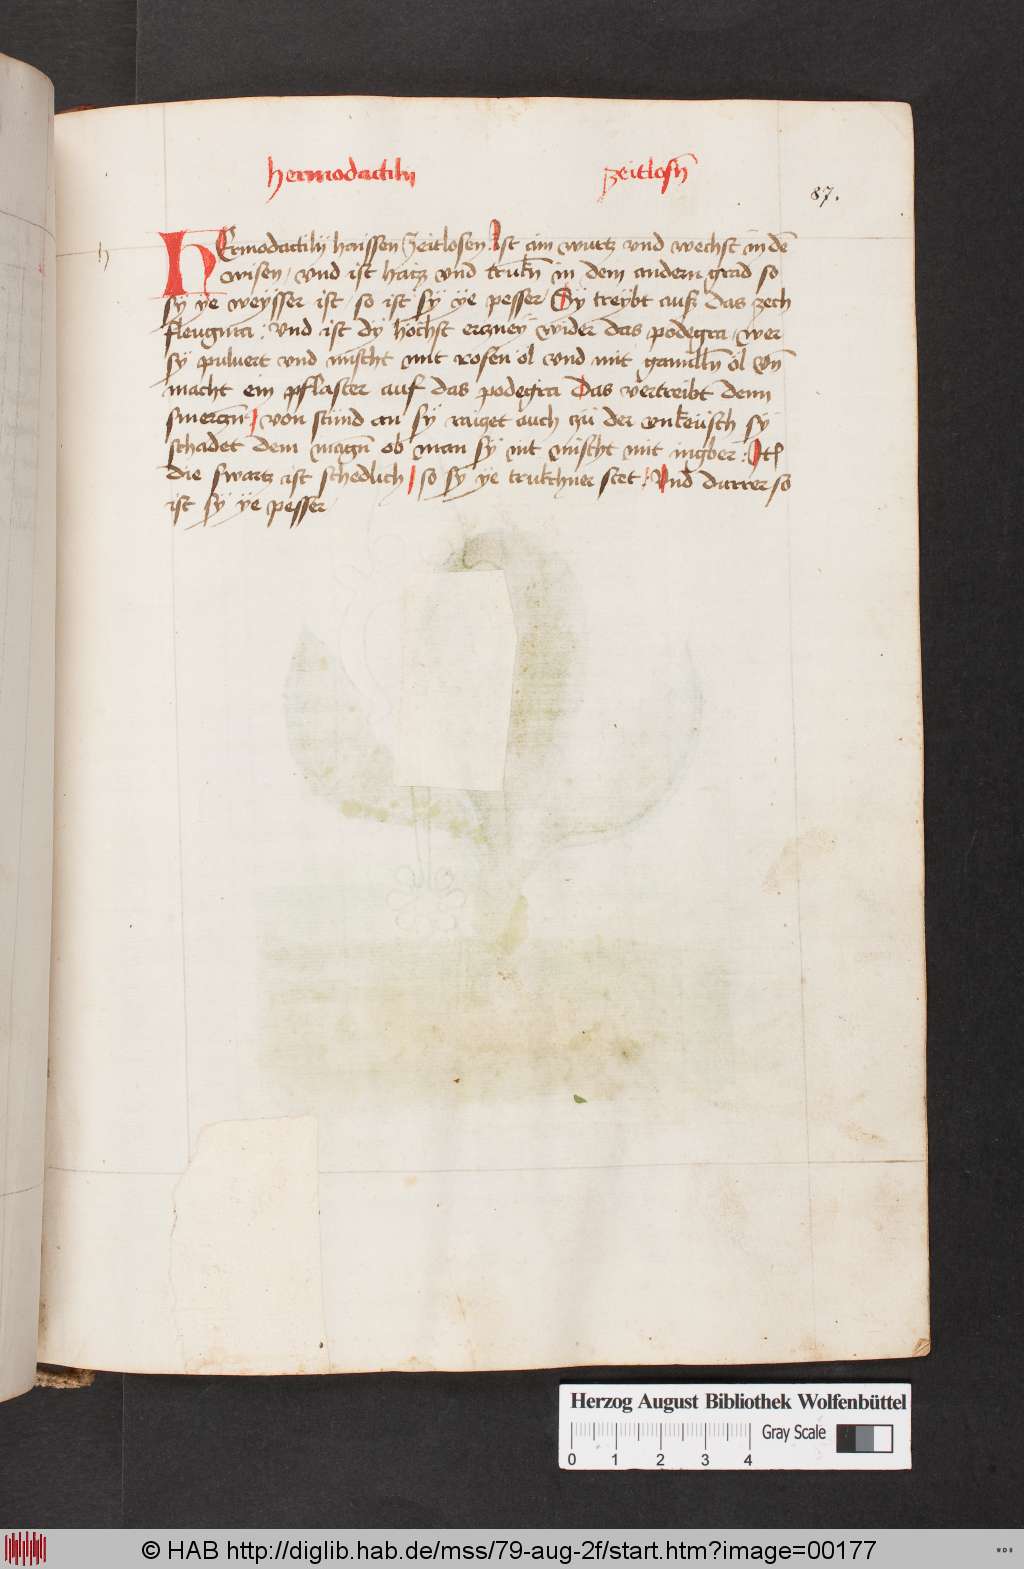 hermodactily zeitlosn̄
87.
h
HErmodactily haissen Zeitlosen Ist ain wurtz vnd wechst in dē
wisen / vnd ist haiz vnd trukn̄ in dem andern grad so
sÿ ÿe weÿsser ist so ist sÿ ÿe pesser Sÿ treÿbt auß das zech
fleugma : vnd ist dÿ höchst erczneÿ wider das podegra / wer
sÿ puluert vnd mischt mit rosen öl vnd mit gamilln̄ öl vn̄
macht ein pflaster auf das podegra Das vertreibt denn
smerczn̄ / von stund an sÿ raiget auch zü der vnkeüsch sÿ
schadet dem magn̄ ob man sÿ nit mischt mit ingber : It
die swartz ist schedlich / so sÿ ÿe trukhner ser / Vnd durrer so
ist sÿ ÿe pesser
Herzog August Bibliothek Wolfenbüttel
Gray Scale
0 1 2 3 4
© HAB http://diglib.hab.de/mss/79-aug-2f/start.htm?image=00177